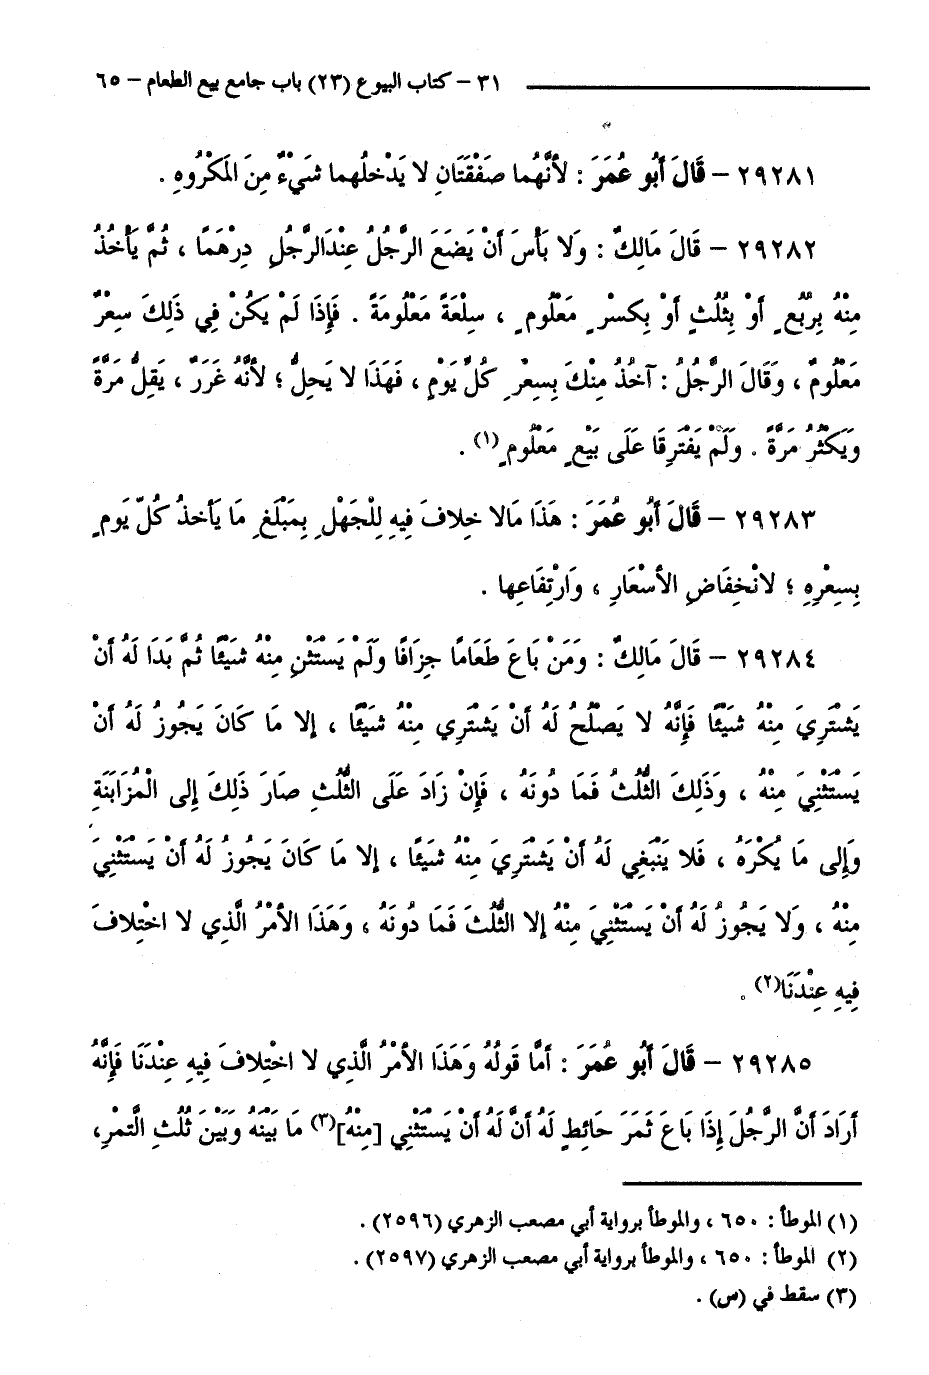 ٣١ – كتاب البيوع (٢٣) باب جامع بيع الطعام – ٦٥
٢٩٢٨١ – قَالَ أَبُو عُمَرَ : لأَنَّهُما صَفْقَتَانِ لا يَدْخلُهما شَيْءٌ مِنَ المَكْرُوهِ .
٢٩٢٨٢ – قَالَ مَالِكٌ : وَلا بَأْسَ أَنْ يَضَعَ الرَّجُلُ عِنْدَالرَّجُلِ دِرْهَمًا ، ثُمَّ يَأْخُذُ
مِنْهُ بِرُبُعٍ أَوْ بِثُلُثٍ أَوْ بِكِسْرٍ مَعْلُومٍ ، سِلْعَةً مَعْلُومَةً . فَإِذَا لَمْ يَكُنْ فِي ذَلِكَ سِعْرٌ
مَعْلُومٌ ، وَقَالَ الرَّجُلُ : آخُذُ مِنْكَ بِسِعْرِ كُلِّ يَوْمٍ ، فَهَذَا لا يَحِلُّ ؛ لأَنَّهُ غَرَرٌ ، يَقِلُّ مَرَّةً
وَيَكْثُرُ مَرَّةً . وَلَمْ يَفْتَرِقَا عَلَى بَيْعٍ مَعْلُومٍ (١) .
٢٩٢٨٣ – قَالَ أَبُو عُمَرَ : هَذَا مَالا خِلافَ فِيهِ لِلْجَهْلِ بِمَبْلَغِ مَا يَأخذُ كُلّ يَومٍ
بِسِعْرِهِ ؛ لانْخِفَاضِ الأسْعَارِ ، وَارْتِفَاعِها .
٢٩٢٨٤ – قَالَ مَالِكٌ : وَمَنْ بَاعَ طَعَاماً جِزَافًا وَلَمْ يَسْتَثْنِ مِنْهُ شَيْئًا ثُمَّ بَدَا لَهُ أَنْ
يَشْتَرِيَ مِنْهُ شَيْئًا فَإِنَّهُ لا يَصْلُحُ لَهُ أَنْ يَشْتَرِي مِنْهُ شَيْئًا ، إلا مَا كَانَ يَجُوزُ لَهُ أَنْ
يَسْتَثْنِيَ مِنْهُ ، وَذَلِكَ الثُّلُثُ فَمَا دُونَهُ ، فَإِنْ زَادَ عَلَى الثُّلُثِ صَارَ ذَلِكَ إِلى الْمُزَابَنَةِ
وَإِلى مَا يُكْرَهُ ، فَلا يَنْبَغِي لَهُ أَنْ يَشْتَرِيَ مِنْهُ شَيْئًا ، إلا مَا كَانَ يَجُوزُ لَهُ أَنْ يَسْتَثْنِيَ
مِنْهُ ، وَلا يَجُوزُ لَهُ أَنْ يَسْتَثْنِيَ مِنْهُ إلا الثُّلُثَ فَمَا دُونَهُ ، وَهَذَا الأَمْرُ الَّذِي لا اخْتِلافَ
فِيهِ عِنْدَنَا(٢) .
٢٩٢٨٥ – قَالَ أَبُو عُمَرَ : أَمَّا قَولُهُ وَهَذَا الأمْرُ الَّذِي لا اخْتِلافَ فِيهِ عِنْدَنَا فَإِنَّهُ
أَرَادَ أَنَّ الرَّجُلَ إِذَا بَاعَ ثَمَرَ حَائِطٍ لَهُ أَنَّ لَهُ أَنْ يَسْتَثْنِي [مِنْهُ](٣) مَا بَيْنَهُ وَبَيْنَ ثُلُثِ التَّمْرِ،
(١) الموطأ : ٦٥٠ ، والموطأ برواية أبي مصعب الزهري (٢٥٩٦) .
(٢) الموطأ : ٦٥٠ ، والموطأ برواية أبي مصعب الزهري (٢٥٩٧) .
(٣) سقط في (ص) .